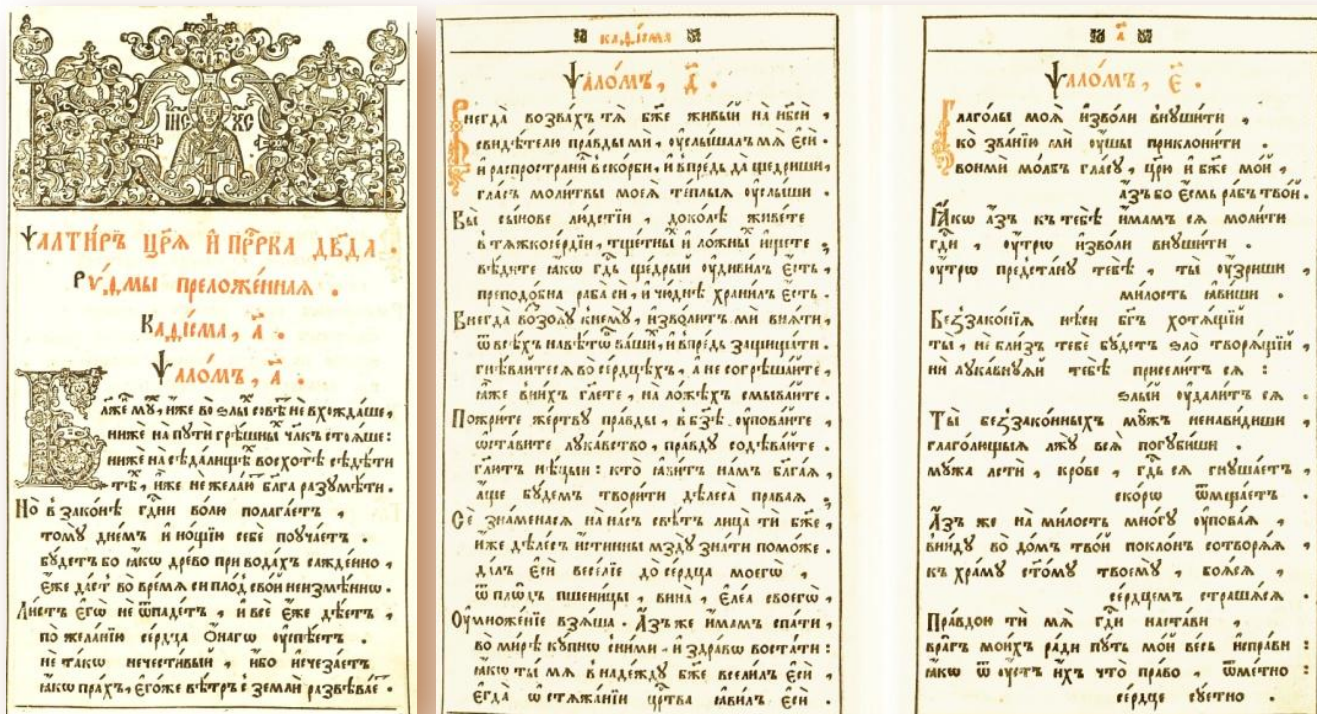 І҆И҃С ХС
Ѱалти́ръ цр҃ѧ̀ и҆ прⷪ҇рка дв҃да .
Рѵ́ѳмы преложе́ннаѧ .
Каѳі́сма , а҃ .
Ѱало́мъ , а҃ .
Бл҃же́ мꙋ , и҆́же во ѕлы̀ совѣ́ не вхожда́ше ,
нижѐ на пꙋтѝ грѣ́шны чл҃къ стоѧ́ше :
нижѐ на сѣда́лищѣ восхотѣ̀ сѣдѣ́ти
тѣ́ , и҆́же не жела́ю бл҃га разꙋмѣ́ти .
Но в зако́нѣ гдⷭ҇ни во́лю полага́етъ ,
томꙋ̀ дне́м и҆ но́щїю себѐ поꙋча́етъ .
бꙋ́детъ бо ꙗ҆́кѡ дре́во при вода́хъ сажде́нно ,
є҆́же да́ст во вре́мѧ си пло́д сво́й неизмѣ́нно .
Ли́стъ є҆гѡ̀ не ѿпаде́тъ , и҆ всѐ є҆́же дѣ́етъ ,
по жела́нїю се́рдца ѻ҆́нагѡ ᲂу҆спѣ́етъ .
не та́кѡ нечести́вый , и҆́бо и҆счеза́етъ
ꙗ҆́кѡ пра́хъ , є҆го́же вѣ́тръ с̾ землѝ развѣва́е .
каѳі́сма
Ѱало́мъ , д҃ .
Внегда̀ возва́хъ тѧ̀ бж҃е живы́й на нб҃сѝ ,
свидѣ́телю пра́вды мѝ , ᲂу҆слы́шалъ мѧ̀ є҆сѝ .
и҆ распространѝ в̾ ско́рби , и҆ впре́дь да щедри́ши ,
гла́съ моли́твы моеѧ̀ те́плыѧ ᲂу҆слы́ши .
Вы̀ сы́нове лю́дстїи , доко́лѣ живе́те
в̾ тѧ́жкосе́рдїи , тще́тны и҆ ло́жны и҆́щете ;
вѣ́дите ꙗ҆́кѡ гдⷭ҇ь ще́дрый ᲂу҆диви́лъ є҆́сть ,
преподо́бна раба̀ сѝ , и҆ чю́днѣ храни́лъ є҆́сть .
Внегда̀ возозꙋ̀ к̾ немꙋ̀ , и҆зво́литъ мѝ внѧ́ти ,
ѿ всѣ́хъ навѣ́тѡ ва́ши , и҆ впре́дь защища́ти .
гнѣ́вайтесѧ во се́рдцѣхъ , а҆ не согрѣша́йте ,
ꙗ҆́же в̾ ни́хъ гл҃ете , на ло́жѣхъ смыва́йте .
Пожри́те же́ртвꙋ пра́вды , в̾ бз҃ѣ ᲂу҆пова́йте ,
ѡ҆ста́вите лꙋка́вство , пра́вдꙋ содѣва́йте .
гл҃ютъ нѣ́цыи : кто̀ ꙗ҆ви́тъ на́мъ бл҃га́ѧ ,
а҆́ще бꙋ́демъ твори́ти дѣлеса̀ пра́ваѧ ;
Сѐ зна́менасѧ на на́съ свѣ́тъ лица̀ тѝ бж҃е ,
и҆́же дѣ́лесъ и҆́стинны мздꙋ̀ зна́ти помо́же .
да́лъ є҆сѝ весе́лїе до се́рдца моегѡ̀ ,
ѿ плѡ́дъ пшени́цы , вина̀ , є҆ле́а своегѡ̀ ,
Оу҆множе́нїе взѧ́ша . А҆́зъ же и҆́мамъ спа́ти ,
во ми́рѣ кꙋ́пнѡ с̾ ни́ми и҆ здра́вѡ воста́ти :
ꙗ҆́кѡ ты̀ мѧ̀ в̾ наде́ждꙋ бж҃е всели́лъ є҆сѝ ,
є҆гда̀ ѡ҆ стѧжа́нїи црⷭ҇тва ꙗ҆ви́лъ є҆сѝ .
а҃
Ѱало́мъ , є҃ .
Глаго́лы моѧ̀ и҆зво́ли внꙋши́ти ,
ко зва́нїю мѝ ᲂу҆́шы приклони́ти .
воньмѝ мо́лбъ гла́сꙋ , цр҃ю̀ и҆ бж҃е мо́й ,
а҆́зъ бо є҆́смь ра́бъ тво́й .
Ꙗ҆́кѡ а҆́зъ къ тебѣ̀ и҆́мамъ сѧ моли́ти
гдⷭ҇и , ᲂу҆́трѡ и҆зво́ли внꙋши́ти .
ᲂу҆́трѡ предста́нꙋ тебѣ̀ , ты̀ ᲂу҆́зриши ,
ми́лость ꙗ҆ви́ши .
Беззако́нїѧ нѣ́си бг҃ъ хотѧ́щїй
ты̀ , не бли́зъ тебѐ бꙋ́детъ ѕло̀ творѧ́щїй ,
ни лꙋка́внꙋѧй тебѣ̀ присели́тъ сѧ :
ѕлы́й ᲂу҆дали́тъ сѧ .
Ты̀ беззако́нныхъ мꙋ́жъ ненави́диши ,
глаго́лющыѧ лжꙋ̀ всѧ̀ погꙋби́ши .
мꙋ́жа ле́сти , кро́ве , гдⷭ҇ь сѧ гнꙋша́етъ ,
ско́рѡ ѿмеща́етъ .
А҆́зъ же на ми́лость мно́гꙋ ᲂу҆пова́ѧ ,
вни́дꙋ во до́мъ тво́й покло́нъ сотворѧ́ѧ ,
къ хра́мꙋ ст҃о́мꙋ твоемꙋ̀ , боѧ́сѧ ,
се́рдцемъ страша́сѧ .
Пра́вдою тѝ мѧ̀ гдⷭ҇и наста́ви ,
вра́гъ мои́хъ ра́ди пꙋ́ть мо́й ве́сь и҆спра́ви :
ꙗ҆́кѡ ѿ ᲂу҆́стъ и҆́хъ что̀ пра́во , ѿме́тно :
се́рдце сꙋ́етно .